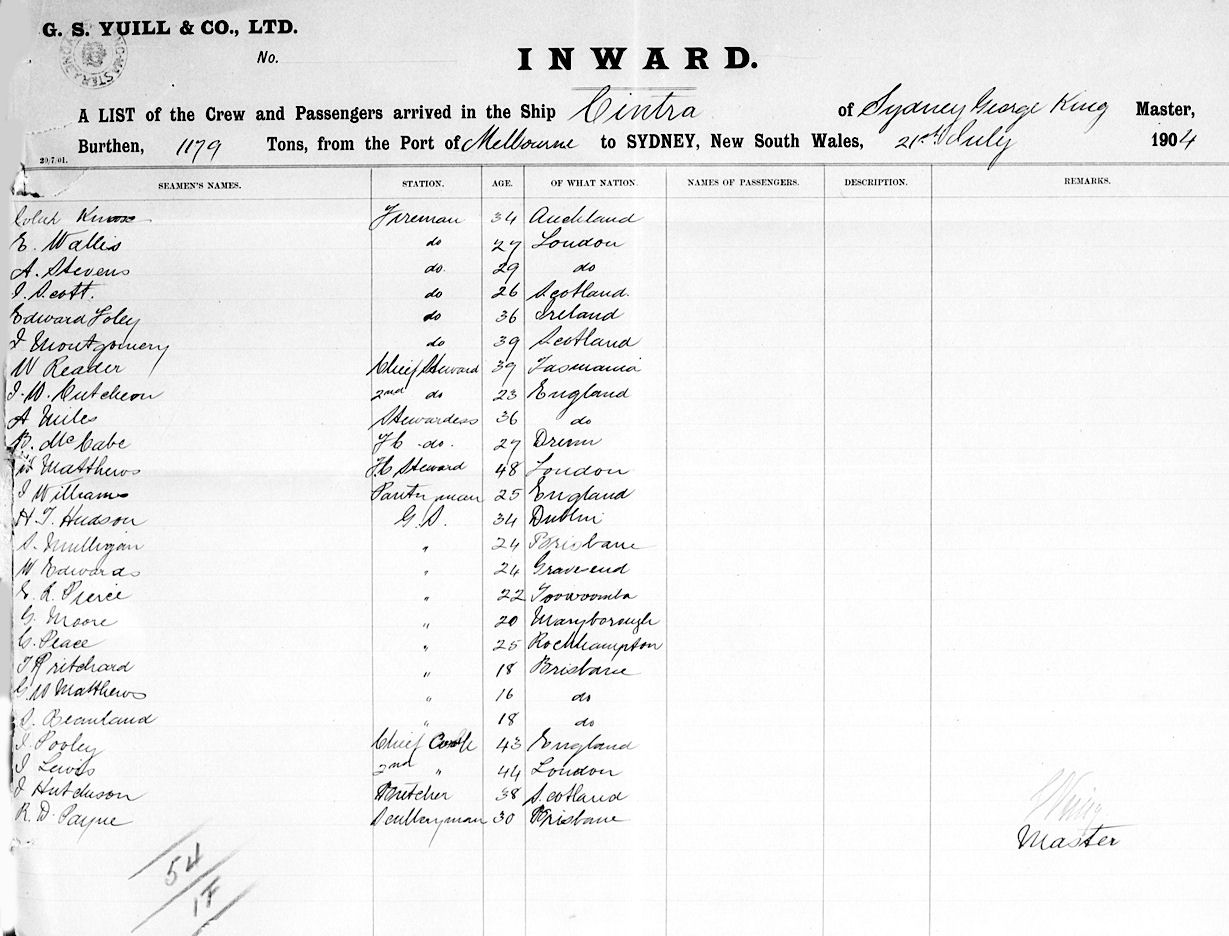 G. S. YUILL & CO., LTD.
No.
INWARD.
A LIST of the Crew and Passengers arrived in the Ship Cintra of Sydney George King Master,
Burthen, 1179 Tons, from the Port of Melbourne to SYDNEY, New South Wales, 21st July 1904
20/7/01.
SEAMEN'S NAMES. STATION. AGE. OF WHAT NATION. NAMES OF PASSENGERS. DESCRIPTION. REMARKS.
Knox Fireman 34 Auckland
E. Wallis do 27 London
A. Stevens do. 29 do
J. Scott. do 26 Scotland.
Edward Foley do 36 Ireland
J Montgomery do 39 Scotland
W Reader Chief Steward 39 Tasmania
J. W. Hutcheon 2nd do 23 England
A Miles Stewardess 36 do
B. McCabe FC do. 27
Matthews FC Steward 48 London
J Williams Pantryman 25 England
H J. Hudson G.S. 34 Dublin
S. Mulligan " 24 Brisbane
W Edwards " 24 Gravesend
E. R. Pierce " 22 Toowoomba
G. Moore " 20 Maryborough
C. Peace " 25 Rockhampton
T Pritchard " 18 Brisbane
G W Matthews " 16 do
S. Beanland " 18 do
J. Pooley Chief Cook 43 England
J Lewis 2nd " 44 London
J Hutchison Butcher 38 Scotland
R. D. Payne Sculleryman 30 Brisbane
Master
54
1F